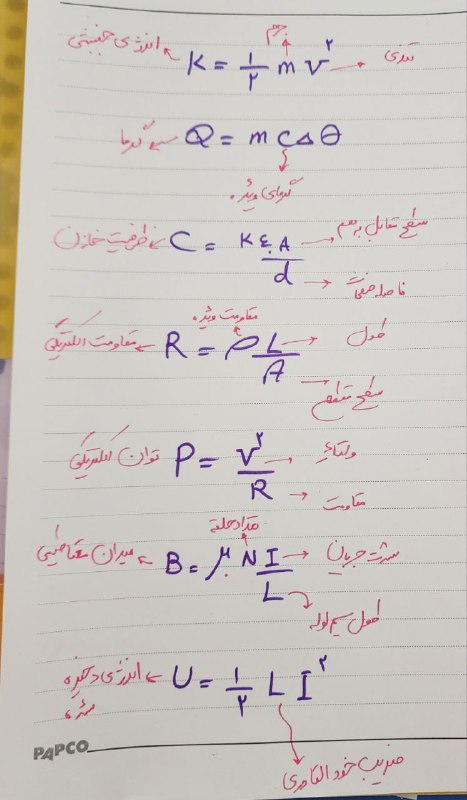 جرم
انرژی جنبشی K = ۱/۲ m v۲ تندی
گرما Q = m c Δ θ
گرمای ویژه
ظرفیت خازن C = K ε. A / d سطح مقابل بهم
فاصله صفحات
مقاومت ویژه
مقاومت الکتریکی R = ρ L / A طول
سطح مقطع
توان الکتریکی P = V۲ / R ولتاژ
مقاومت
تعداد حلقه
میدان مغناطیسی B = μ. N I / L شدت جریان
طول سیم لوله
انرژی ذخیره U = ۱/۲ L I۲
شده
ضریب خود القاوری
PAPCO